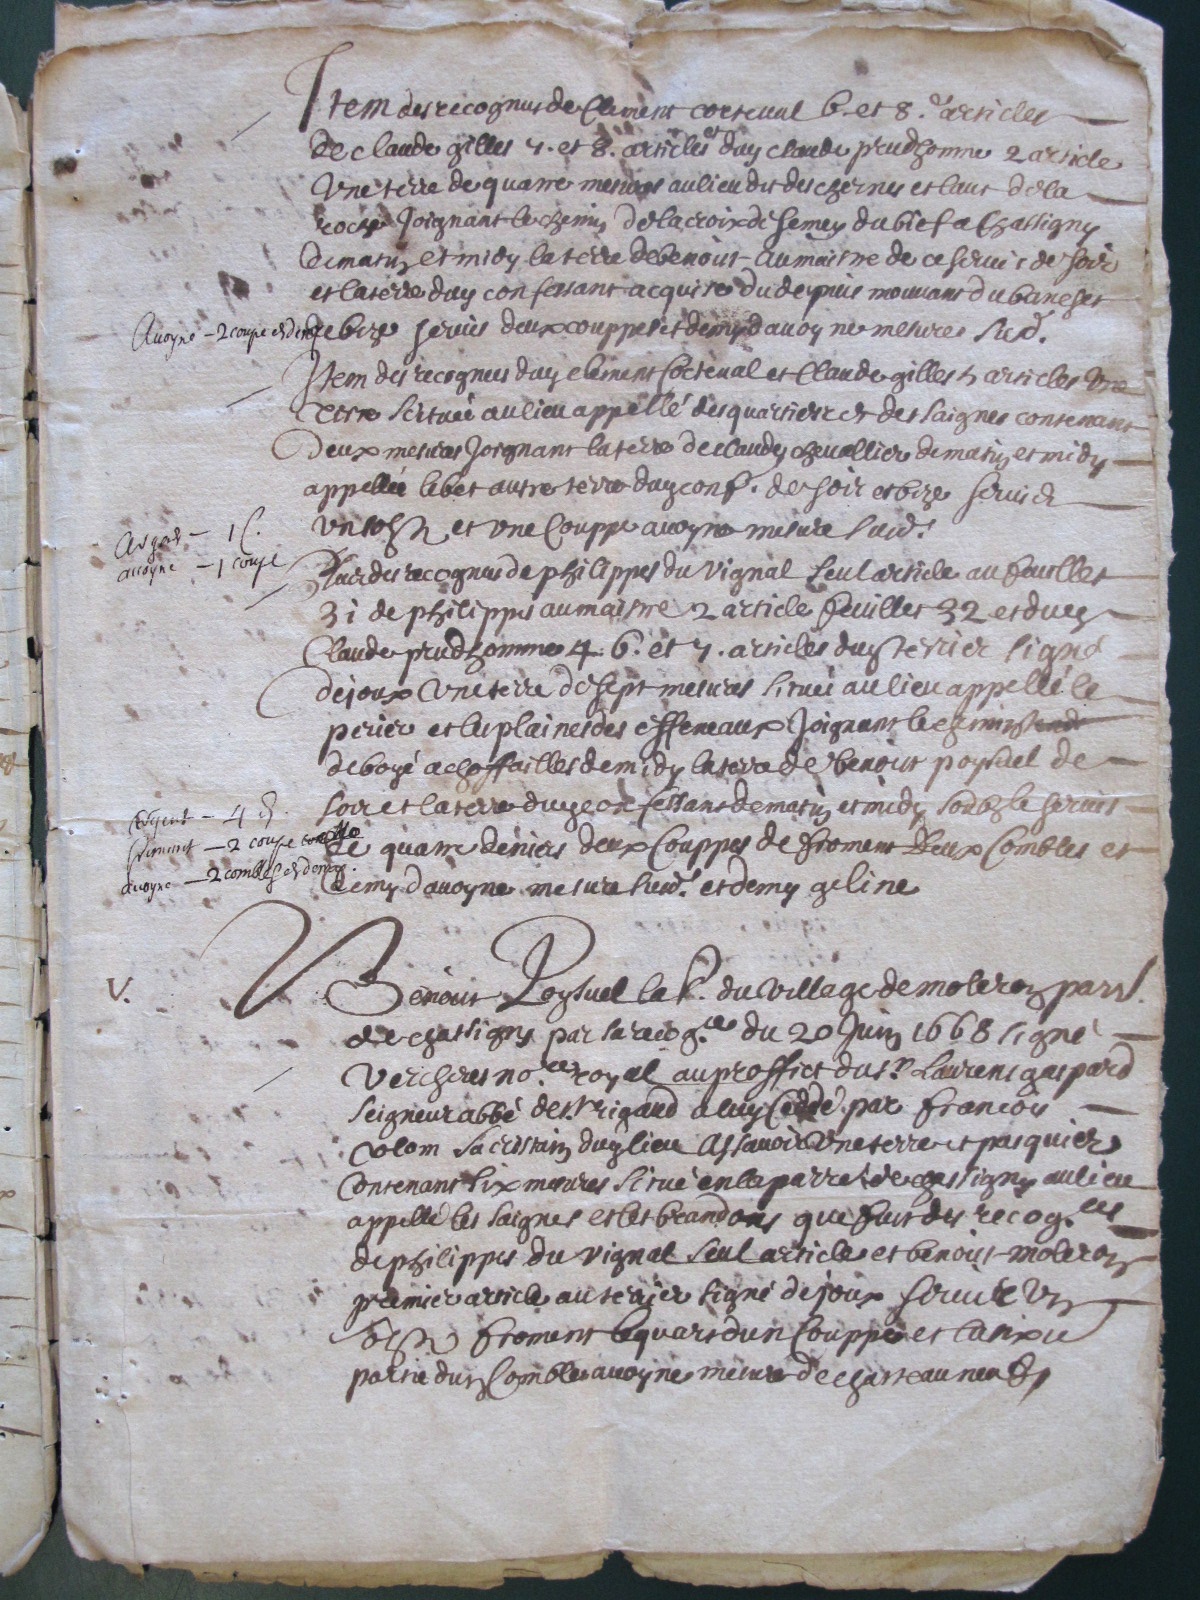 Item des recognus de Clement corteval 6. et 8. articles
de claude gilles 7. et 8. articles et duy claude prudhomme 2 article
Une terre de quatre mesures au lieu dit des chernes et laut de la
roche Joignant le chemin de la croix de semey du bief a Chassigny
de matin et midy la terre de benoist aumaistre de ce servis de soir
et la terre duy confessant acquise du depuis mouvant du
de bize servis deux couppes et demy d'avoyne mesure susd.
Avoyne - 2 coupe et demy
Item des recognus duy clement Corteval et Claude gilles 5 articles Une
terre scituée au lieu appellé des quartiers et des saignes contenant
deux mesures Joignant la terre de claude chevallier de matin et midy
appellée et autre terre duy conf. de soir et bize servis de
un solz et une Couppe avoyne mesure susd.
Argent - 1 s.
avoyne - 1 coupe
Plus des recognus de philippes du vignal seul article au feuillet
31 de philippes aumaistre 2 article feuillet 32 et duy
Claude prudhomme 4. 6. et 7. articles duy terrier signé
dejoux Une terre de sept mesures scituée au lieu appellé le
perier et les plaines des effeneaux Joignant le chemin tend
de boyé a choffailles de midy la terre de benoist poysuel de
soir et la terre duy confessant de matin et midy soubz le servis
de quatre deniers deux Couppes de froment deux Combles et
demy d'avoyne mesure susd. et demy geline
Argent - 4 d.
froment - 2 coupe comble
avoyne - 2 combles et demy
V.
Benoist Poysuel lab. du village de moleron parr.
de chassigny par sa recog.ce du 20 Juin 1668 signé
Vercheres no.re royal au proffict du sr. Laurens gaspard
seigneur abbé de St. rigaud a luy Cedde par francois
volom sacristain duy lieu Assavoir Une terre et pasquier
Contenant six mesures scitué en la parre. de chassigny au lieu
appellé les saignes et les brandons que fust des recog.ces
de philippes du vignal seul article et benoist moleron
premier article au terrier signé dejoux servis Un
solz froment le quart dun Couppe et la sixie
partie dun Comble avoyne mesure de chasteauneuf